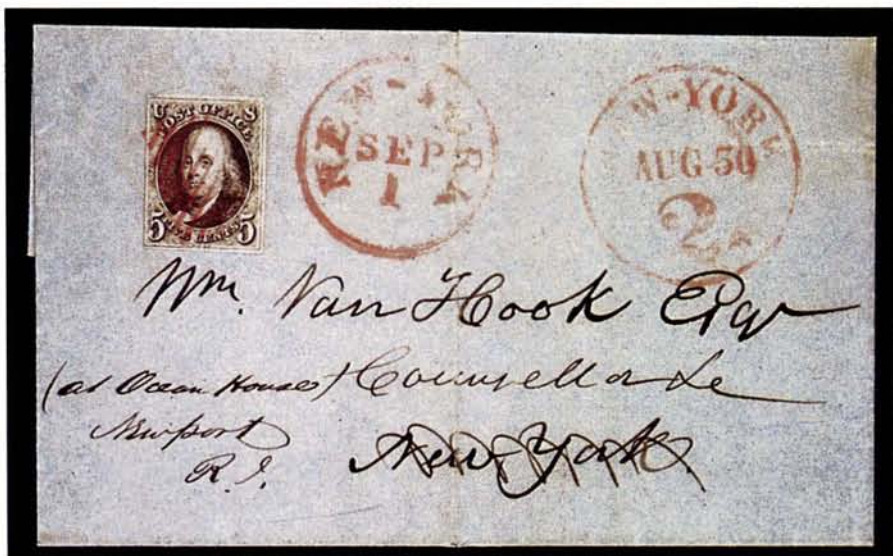 U S
POST OFFICE
5 FIVE CENTS 5
NEW-YORK
SEP
1
NEW-YORK
AUG 30
2 cts
Wm. Van Hook Esqr
(at Ocean House) Counsellor &c
Newport New York.
R. I.